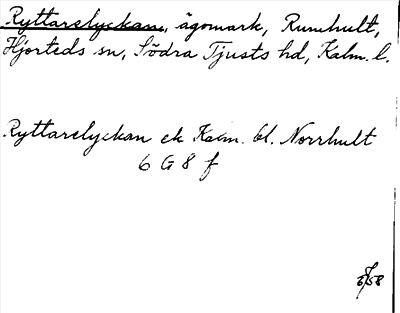 Ryttarelyckan, ägomark, Rumhult,
Hjorteds sn, Södra Tjusts hd, Kalm. l.
Ryttarelyckan ek Kalm. bl. Norrhult
6 G 8 f